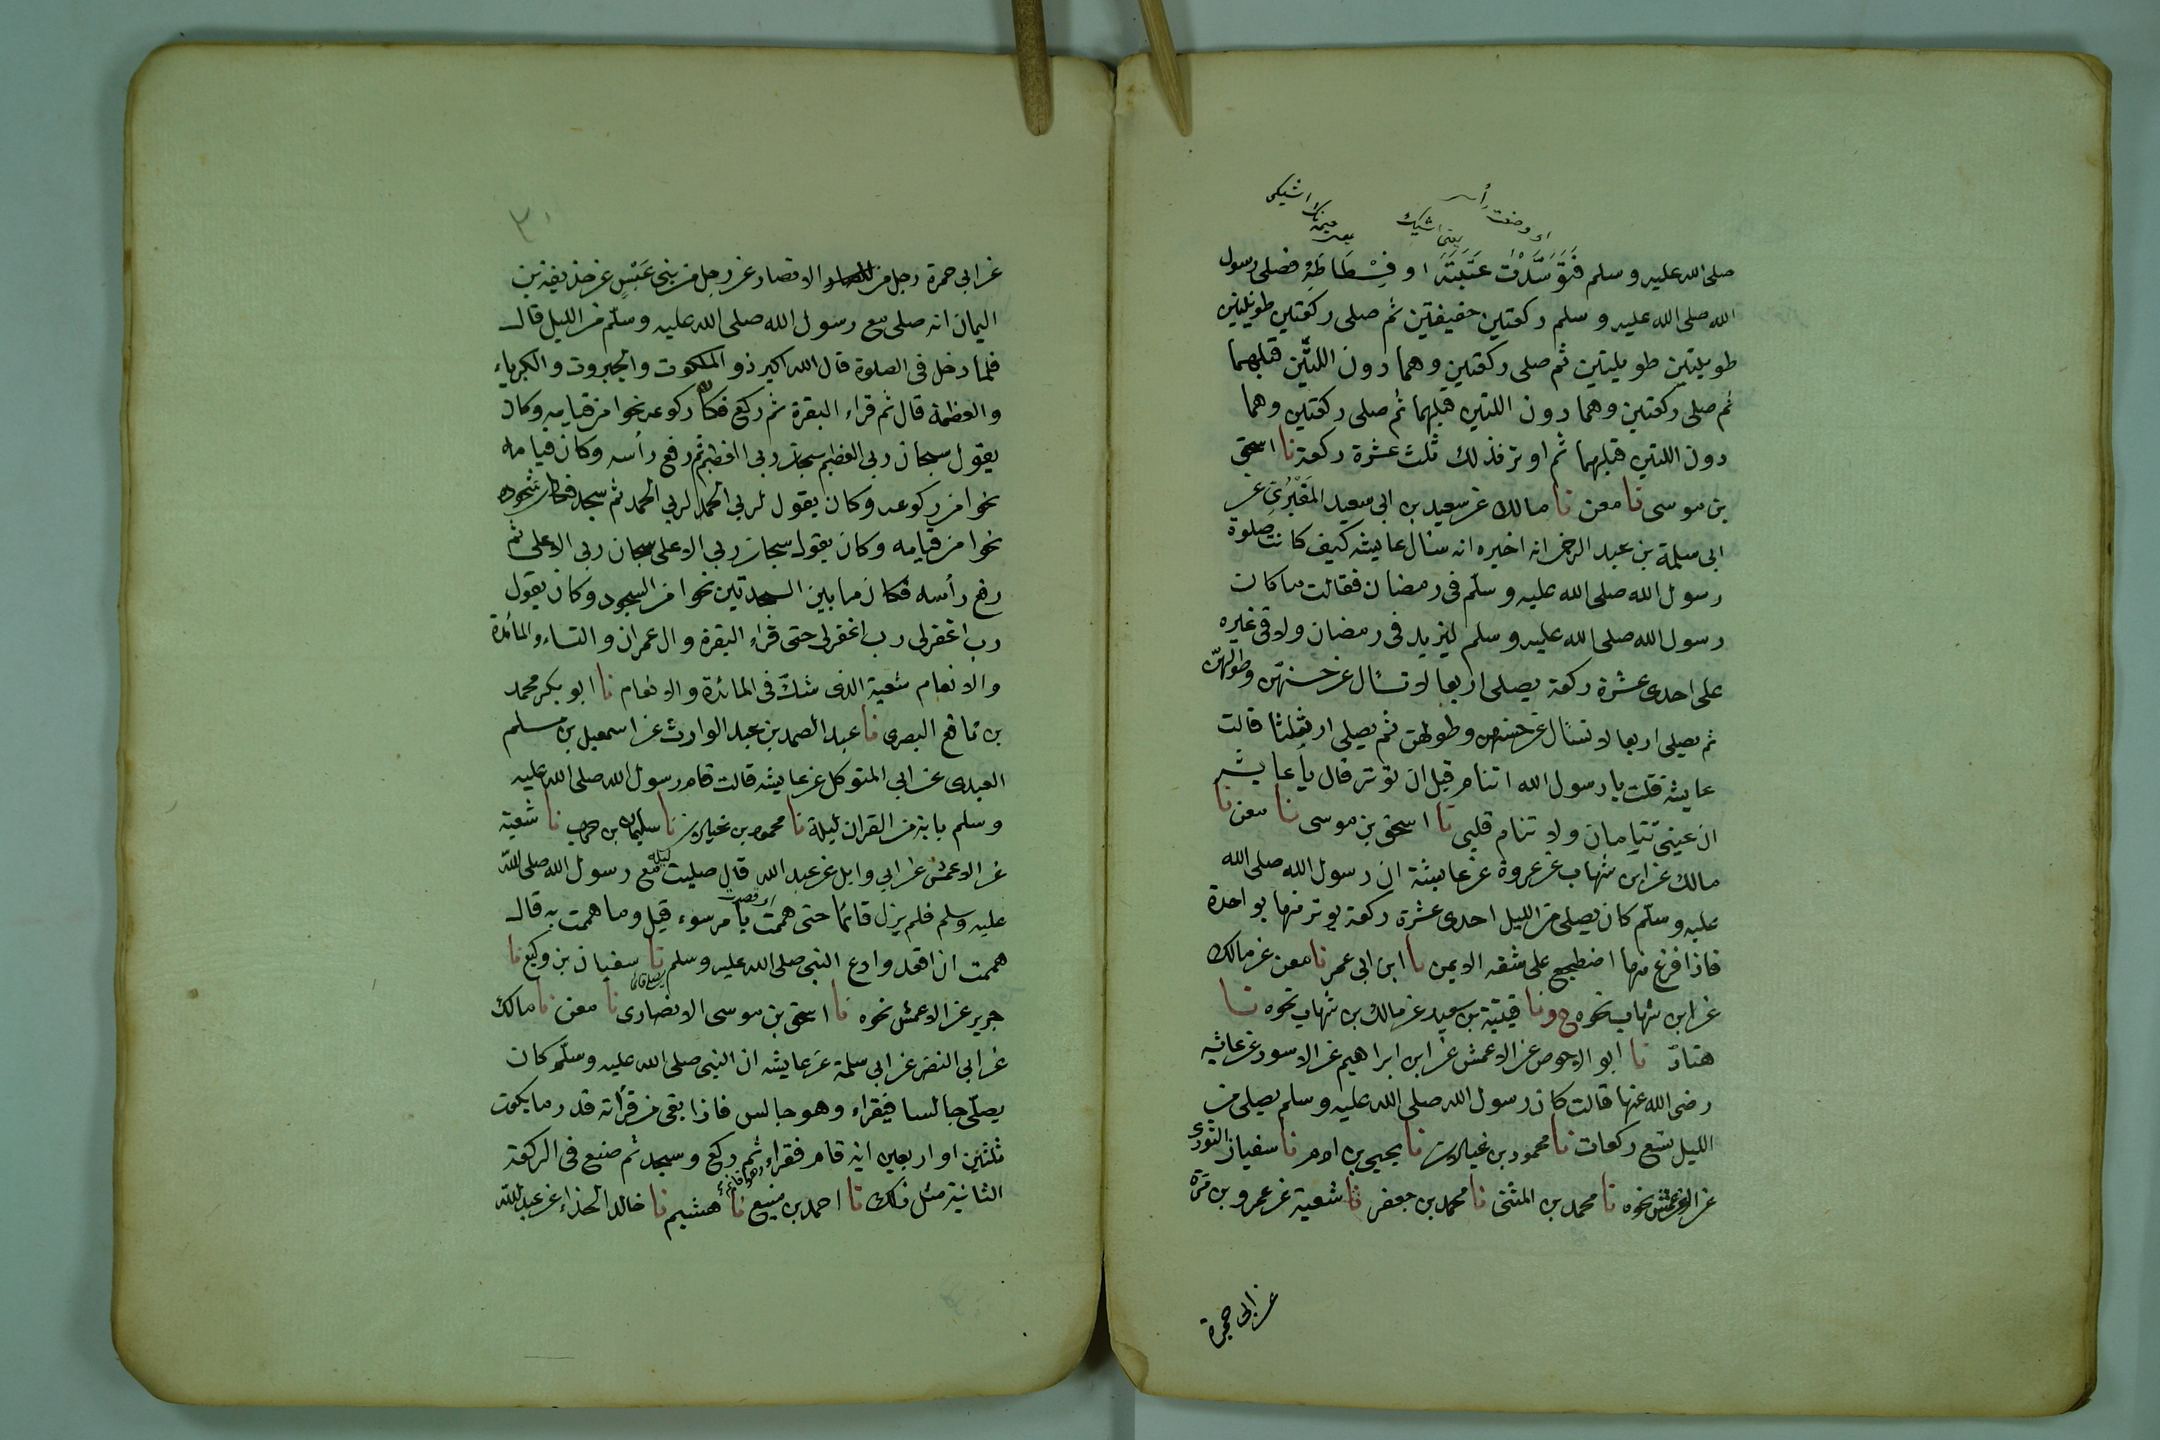 او وضعت رأسى
يعنى اشيك
يعنى خيمه نك اشيكى
صلى الله عليه وسلم فَتَوَسَّدْتُ عَتَبَتَهُ او فِسْطَاطَهُ فصلى رسول
الله صلى الله عليه وسلم ركعتين خفيفتين ثم صلى ركعتين طويلتين
طويلتين طويلتين ثم صلى ركعتين وهما دون اللتين قبلهما
ثم صلى ركعتين وهما دون اللتين قبلهما ثم صلى ركعتين وهما
دون اللتين قبلهما ثم اوتر فذلك ثلث عشرة ركعة نا اسحق
بن موسى نا معن نا مالك عن سعيد بن ابى سعيد المَقْبُرِى عن
ابى سلمة بن عبد الرحمن انه اخبره انه سئال عايشه كيف كانت صلوة
رسول الله صلى الله عليه وسلم فى رمضان فقالت ما كان
رسول الله صلى الله عليه وسلم ليزيد فى رمضان ولا فى غيره
على احدى عشرة ركعة يصلى اربعا لا تسئال عن حسنهن وطولهن
ثم يصلى اربعا لا تسئال عن حسنهن وطولهن ثم يصلى ثلثا قالت
عايشه قلت يا رسول الله اتنام قبل ان توتر قال يا عايشه
ان عينى تنامان ولا تنام قلبى نا اسحق بن موسى نا معن نا
مالك عن ابن شهاب عن عروة عن عايشة ان رسول الله صلى الله
عليه وسلم كان يصلى من الليل احدى عشرة ركعة يوتر منها بواحدة
فاذا فرغ منها اضطجع على شقه الايمن نا ابن ابى عمر نا معن عن مالك
عن ابن شهاب نحوه ح ونا قتيبة بن سعيد عن مالك بن شهاب نحوه نا
هناد نا ابو الاحوص عن الاعمش عن ابن ابراهيم عن الاسود عن عايشه
رضى الله عنها قالت كان رسول الله صلى الله عليه وسلم يصلى من
الليل تسع ركعات نا محمود بن غيلان نا يحيى بن ادم نا سفيان الثورى
عن الاعمش نحوه نا محمد بن المثنى نا محمد بن جعفر نا شعبة عن عمرو بن مرّة
عن ابى حمزة
٣٠
عن ابى حمزة رجل من الانصار عن رجل من بنى عَبْسٍ عن حذيفة بن
اليمان انه صلى مع رسول الله صلى الله عليه وسلّم من الليل قال
فلما دخل فى الصلوة قال الله اكبر ذو الملكوت والجبروت والكبرياء
والعظمة قال ثم قراء البقرة ثم ركع فكان ركوعه نحوا من قيامه وكان
يقول سبحان ربى العظيم سبحان ربى العظيم ثم رفع رأسه وكان قيامه
نحوا من ركوعه وكان يقول لربى الحمد لربى الحمد ثم سجد فكان سجوده
نحوا من قيامه وكان يقول سبحان ربى الاعلى سبحان ربى الاعلى ثم
رفع رأسه فكان ما بين السجدتين نحوا من السجود وكان يقول
رب اغفرلى رب اغفرلى حتى قراء البقرة وال عمران والنساء والمائدة
والانعام شعبة الذى شكّ فى المائدة والانعام نا ابو بكر محمد
بن نافع البصرى نا عبد الصمد بن عبد الوارث عن اسمعيل بن مسلم
العبدى عن ابى المتوكل عن عايشه قالت قام رسول الله صلى الله عليه
وسلم باية من القران ليلة نا محمود بن غيلان نا سليمان بن حرب نا شعبة
عن الاعمش عن ابى وايل عن عبد الله قال صليت ليلة مع رسول الله صلى الله
عليه وسلم فلم يزل قائما حتى هممت اى قصدت بامر سوء قيل وما هممت به قال
هممت ان اقعد وادع النبى صلى الله عليه وسلم نا سفيان بن وكيع نا
جرير عن الاعمش نحوه نا اسحق بن موسى الانصارى نا معن نا مالك
عن ابى النضر عن ابى سلمة عن عايشه ان النبى صلى الله عليه وسلم كان
يصلّى جالسا فيقراء وهو جالس فاذا بقى من قرأته قدر ما يكون
ثلثين او اربعين اية قام فقراء وهو قائم ثم ركع وسجد ثم صنع فى الركعة
الثانية مثل ذلك نا احمد بن منيع نا هشيم نا خالد الحذاء عن عبد الله